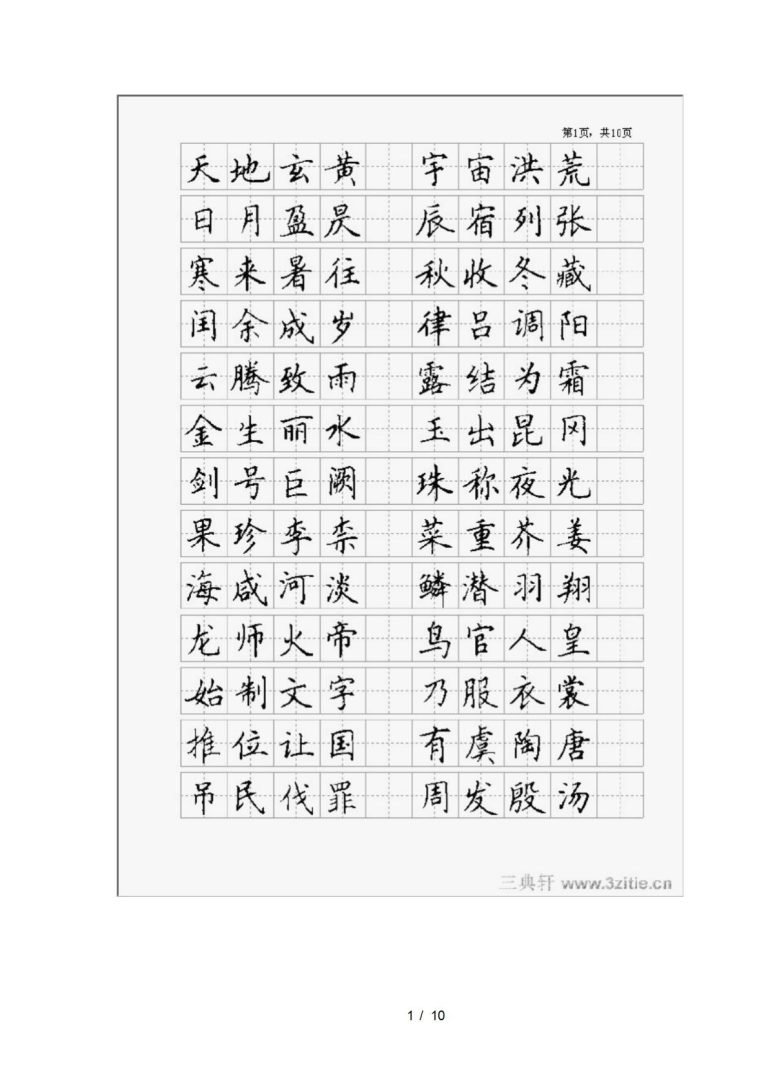 第1页，共10页
天地玄黄 宇宙洪荒
日月盈昃 辰宿列张
寒来暑往 秋收冬藏
闰余成岁 律吕调阳
云腾致雨 露结为霜
金生丽水 玉出昆冈
剑号巨阙 珠称夜光
果珍李柰 菜重芥姜
海咸河淡 鳞潜羽翔
龙师火帝 鸟官人皇
始制文字 乃服衣裳
推位让国 有虞陶唐
吊民伐罪 周发殷汤
三典轩 www.3zitie.cn
1 / 10